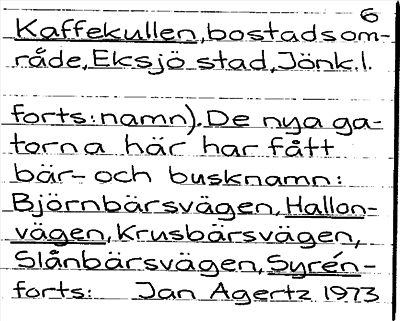 6
Kaffekullen, bostadsom-
råde, Eksjö stad, Jönk.l.
forts: namn). De nya ga-
torna här har fått
bär- och busknamn:
Björnbärsvägen, Hallon-
vägen, Krusbärsvägen,
Slånbärsvägen, Syrén-
forts: Jan Agertz 1973